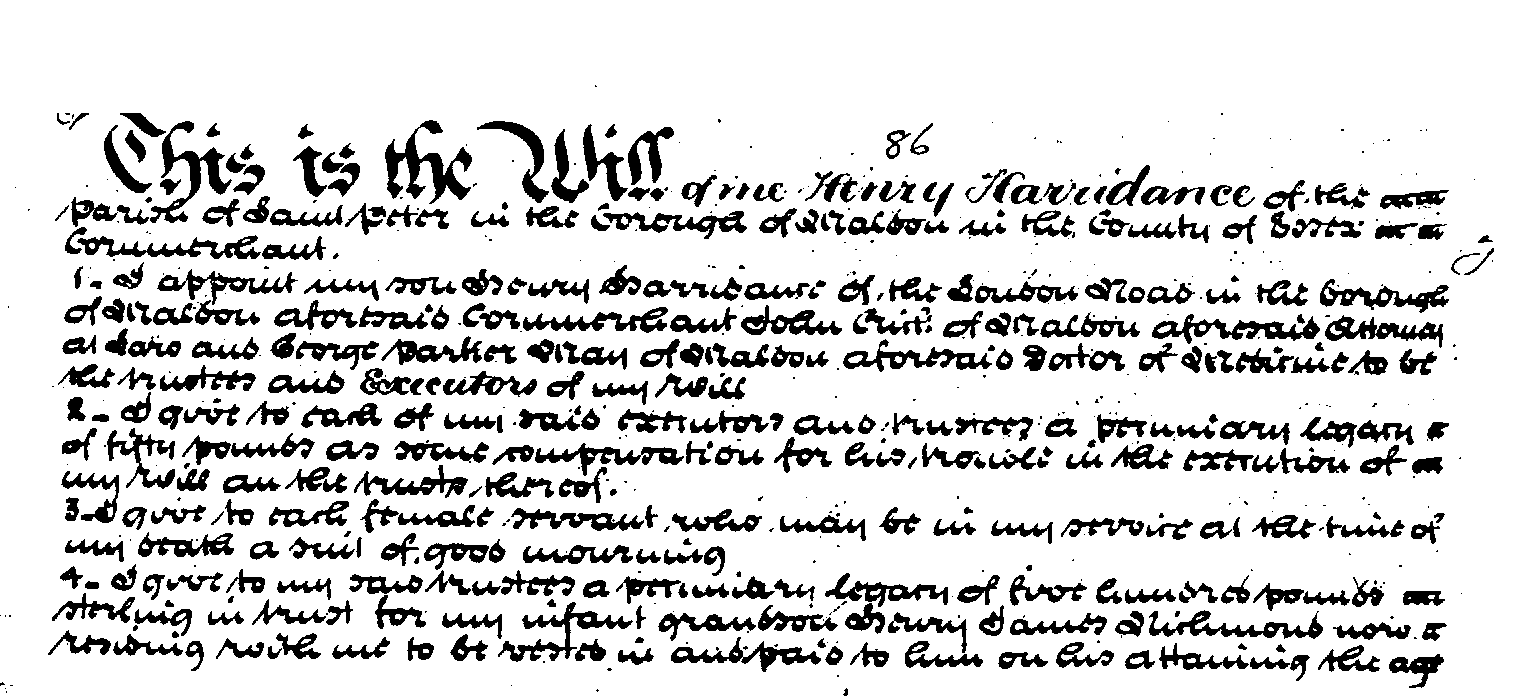 86
This is the Will of me Henry Harridance of the
Parish of Saint Peter in the Borough of Maldon in the County of Essex
Cornmerchant.
1. I appoint my son Henry Harridance of the London Road in the Borough
of Maldon aforesaid Cornmerchant John Crick of Maldon aforesaid Attorney
at Law and George Parker May of Maldon aforesaid Doctor of Medicine to be
the trustees and Executors of my Will
2. I give to each of my said executors and trustees a pecuniary legacy
of fifty pounds as some compensation for his trouble in the execution of
my Will an the trusts thereof.
3. I give to each female servant who may be in my service at the time of
my death a suit of good mourning
4. I give to my said trustees a pecuniary legacy of five hundred pounds
sterling in trust for my infant grandson Henry James Richmond now
residing with me to be vested in and paid to him on his attaining the age